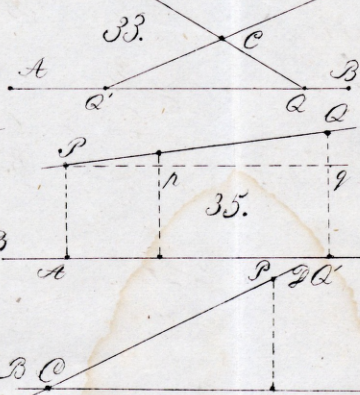 33.
C
A B
Q' Q
Q
P
p q
35.
B A
P D Q'
B C